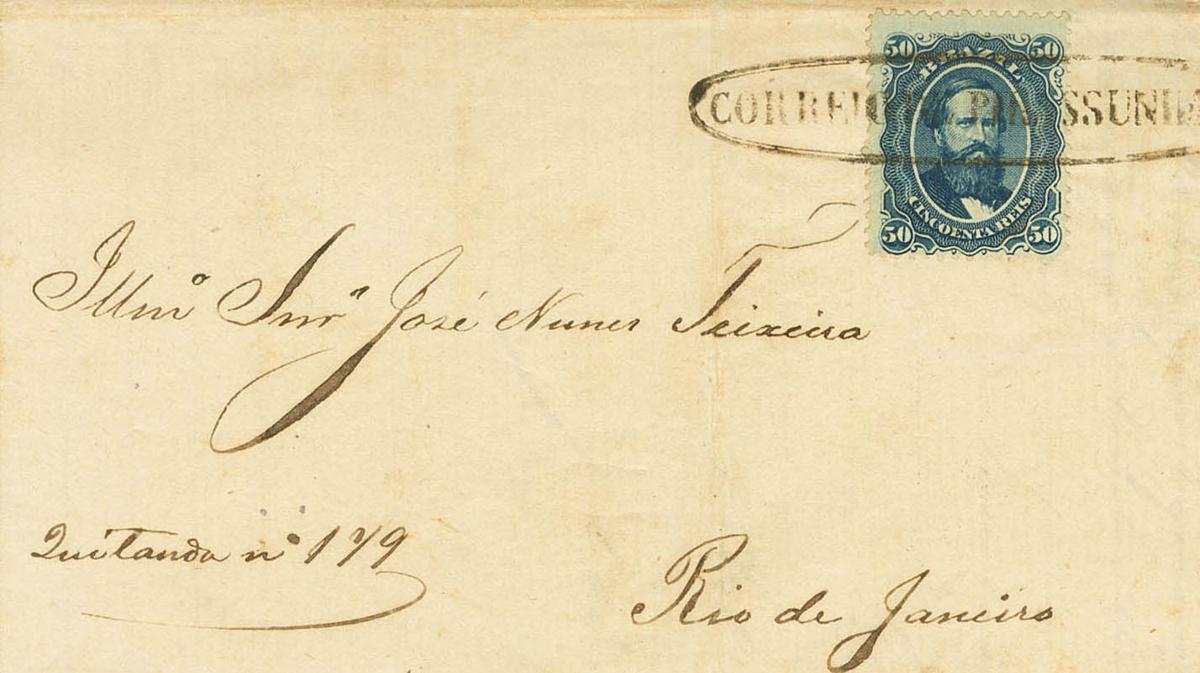 50 50
BRAZIL
CORREIO PIRASSUNU
CINCOENTA REIS
50 50
Illmº Snrº José Nunes Teixeira
Quitanda nº 179
Rio de Janeiro